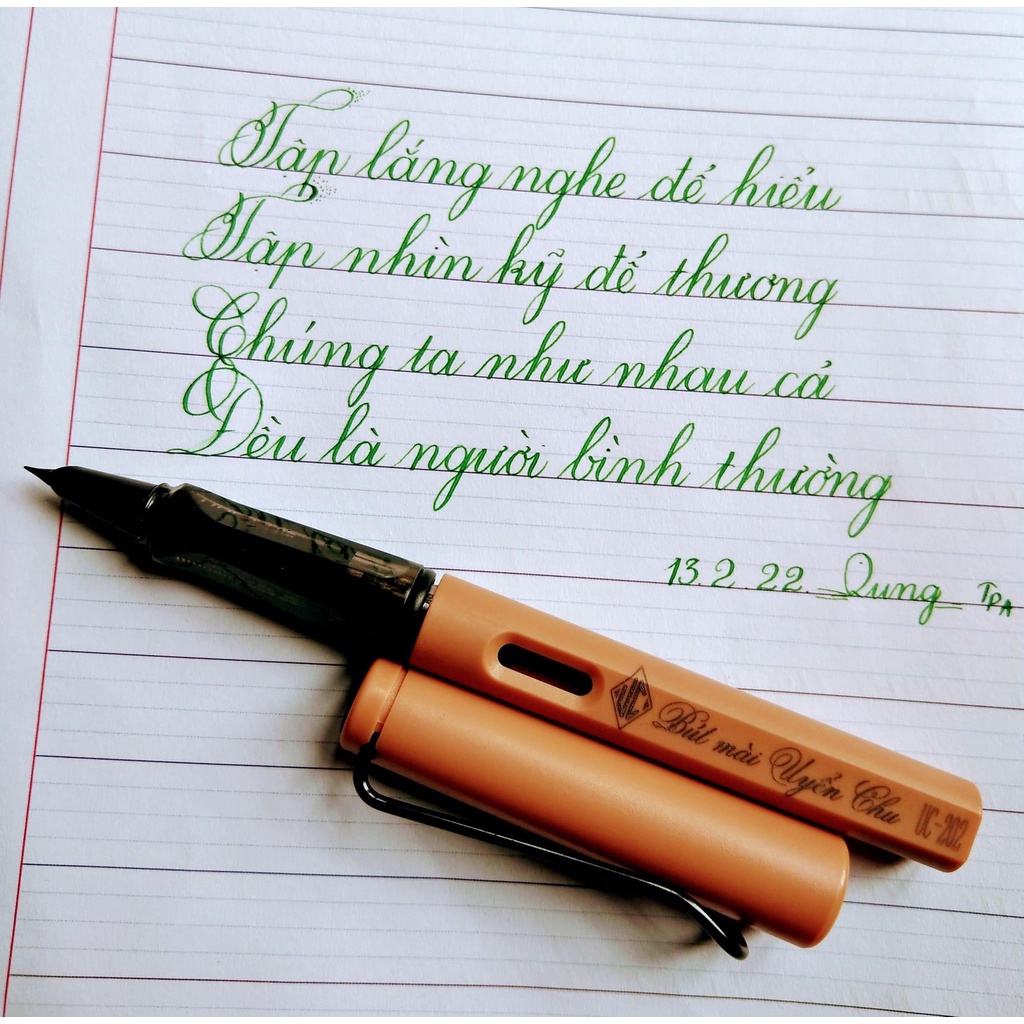 Tập lắng nghe để hiểu
Tập nhìn kỹ để thương
Chúng ta như nhau cả
Đều là người bình thường
13.2.22. Dung TPA
UC Bút mài Uyển Chu UC-202